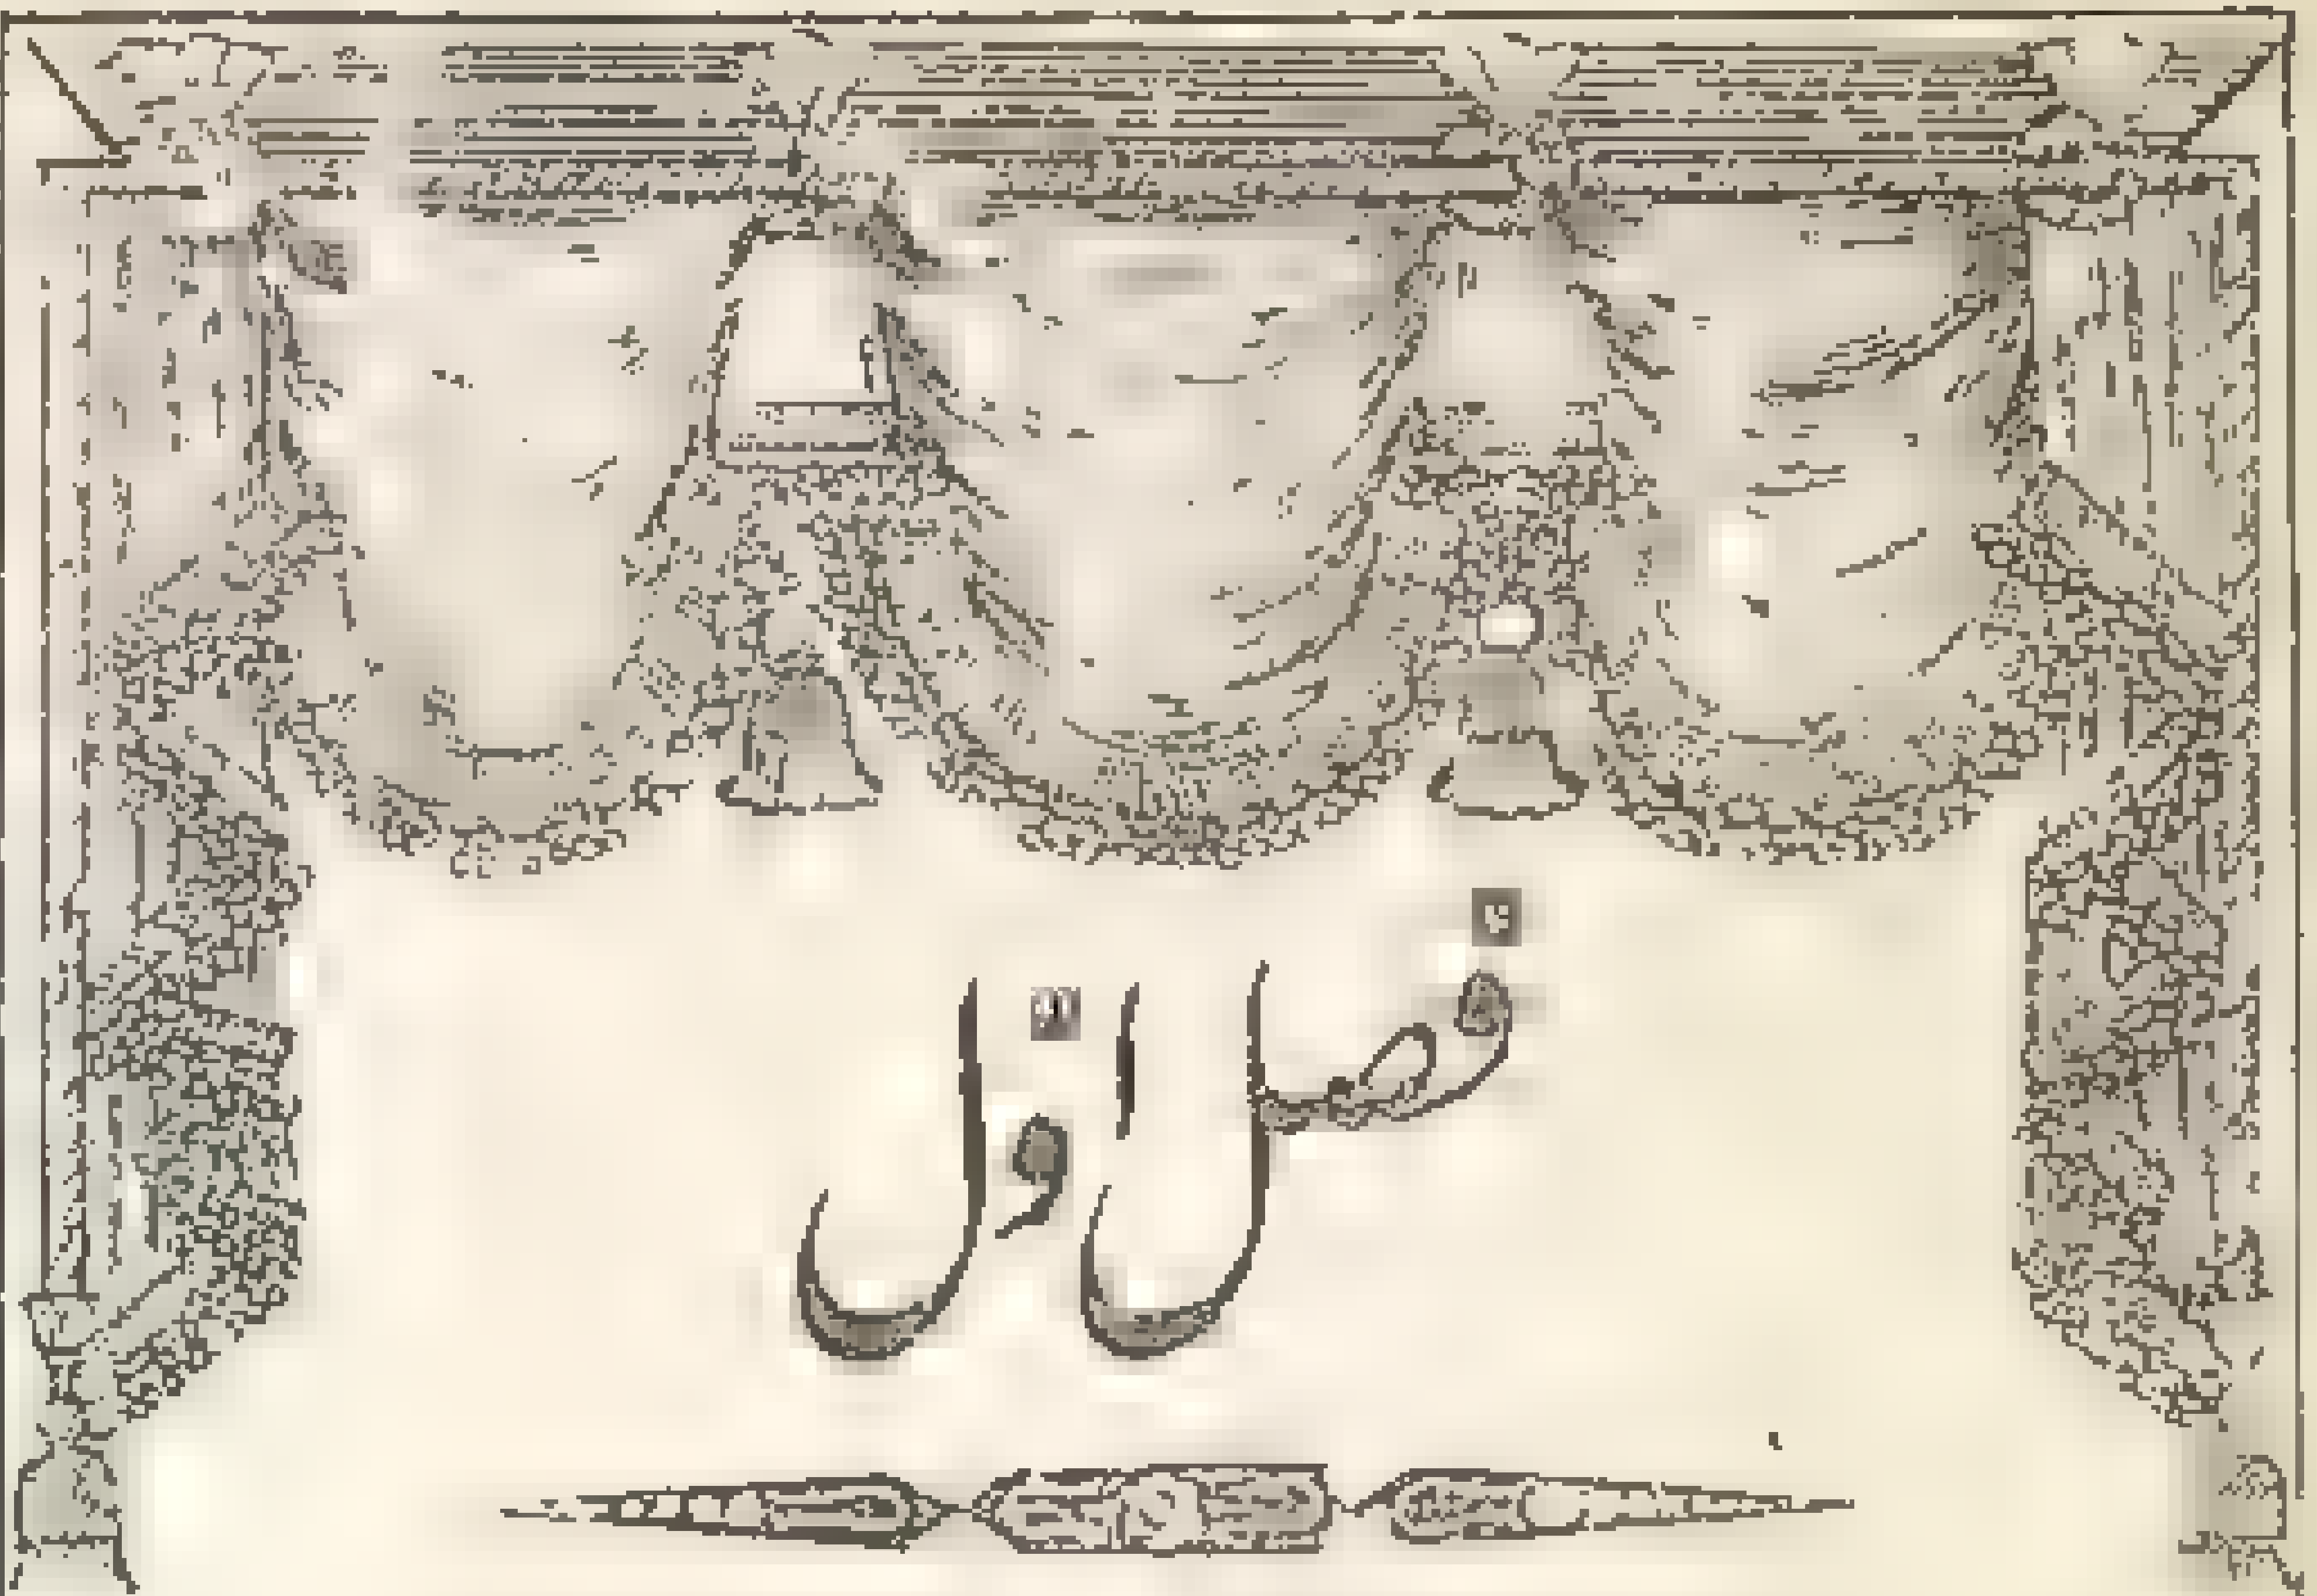 فصل اول